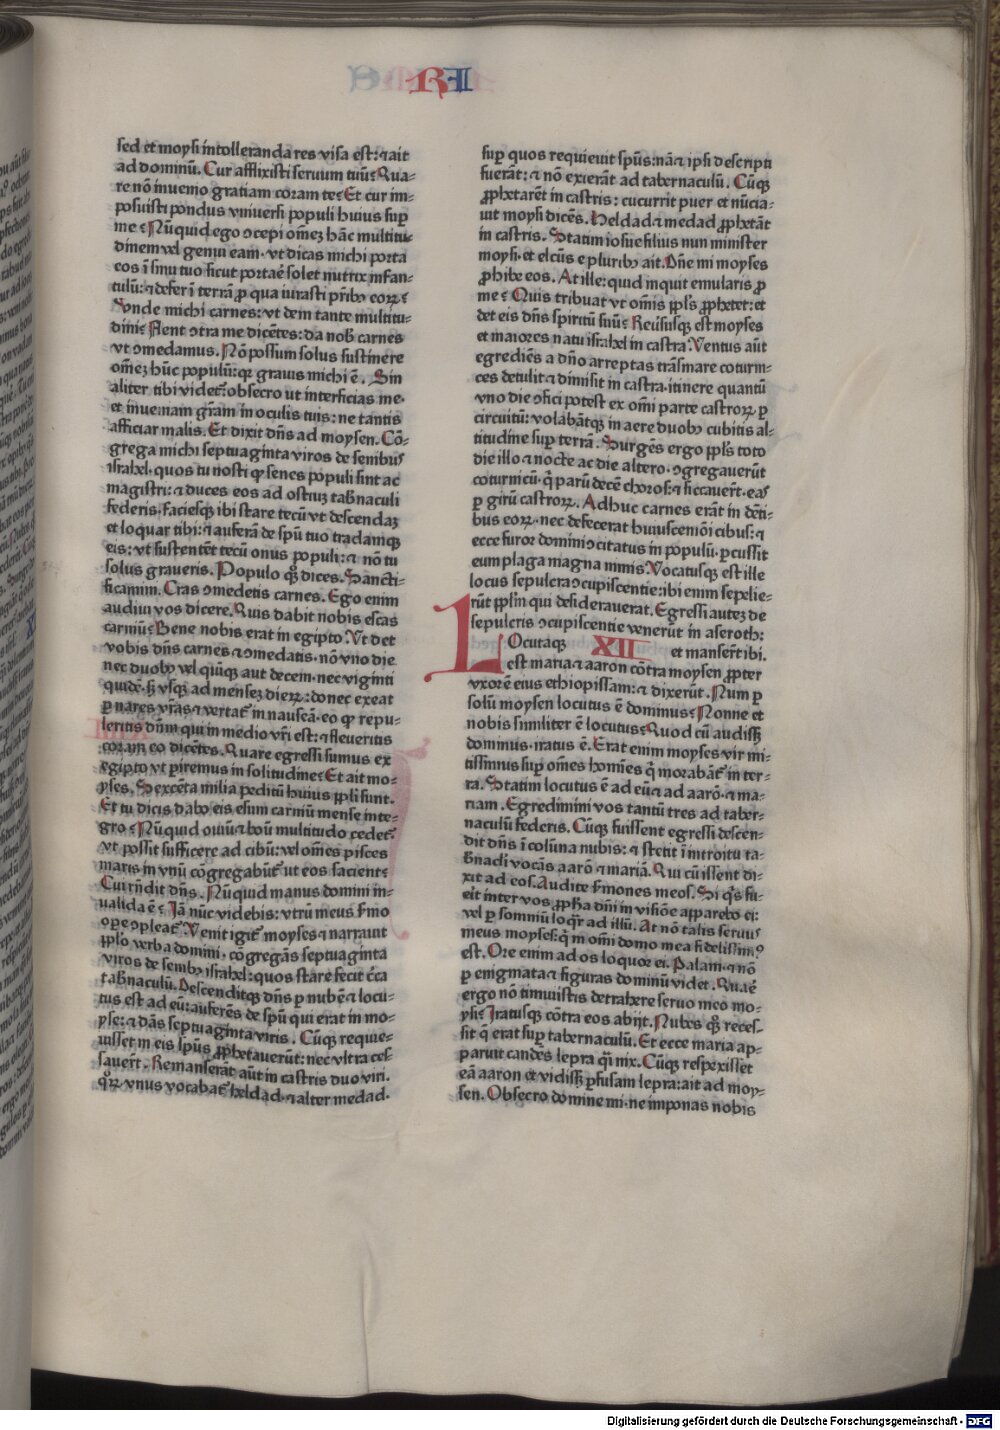 RI
sed et moysi intolleranda res visa est:⁊ait
ad dominū. Cur afflixisti seruum tuū? Qua-
re nō inuenio gratiam coram te? Et cur im-
posuisti pondus vniuersi populi huius sup̄
me? Nūquid ego ↄcepi om̄eꝫ hāc multitu-
dinem vel genui eam· vt dicas michi porta
eos ī sinu tuo sicut portaē solet nutrix infan-
tulū:⁊defer ī terrā ꝓ qua iurasti pr̄ibꝰ eoꝝ?
Vnde michi carnes: vt dem tante multitu-
dini? Flent ↄtra me dicētes: da nob̄ carnes
vt ↄmedamus. Nō possum solus sustinere
om̄eꝫ hūc populū: qꝛ grauis michi ē. Sin
aliter tibi videt᷑: obsecro ut interficias me·
et inueniam gr̄am in oculis tuis: ne tantis
afficiar malis. Et dixit dn̄s ad moysen. Cō-
grega michi septuaginta viros de senibus
israhel· quos tu nosti ꝙ senes populi sint ac
magistri: ⁊ duces eos ad ostiuꝫ tab̄naculi
federis· faciesqꝫ ibi stare tecū vt descendaꝫ
et loquar tibi: ⁊ auferā de spū tuo tradamqꝫ
eis: vt sustentēt tecū onus populi: ⁊ nō tu
solus graueris. Populo qꝫ dices. Sancti-
ficamini. Cras ↄmedetis carnes. Ego enim
audiui vos dicere. Quis dabit nobis escas
carniū? Bene nobis erat in egipto. Vt det
vobis dn̄s carnes ⁊ ↄmedatis· nō vno die
nec duobꝰ vel quīqꝫ aut decem· nec viginti
quidē· sꝫ vsqꝫ ad menseꝫ dieꝝ: donec exeat
ꝑ nares vr̄as ⁊ vertat᷑ in nauseā· eo ꝙ repu-
leritis dn̄m qui in medio vr̄i est: ⁊ fleueritis
coram eo dicētes. Quare egressi sumus ex
egipto vt ꝑiremus in solitudine? Et ait mo-
yses. Sexcēta milia peditū huius pp̄li sunt·
Et tu dicis dabo eis esum carniū mense inte-
gro? Nūquid ouiū ⁊ boū multitudo cedet᷑·
vt possit sufficere ad cibū: vel om̄es pisces
maris in vnū cōgregabūt᷑ ut eos sacient?
Cui rn̄dit dn̄s. Nūquid manus domini in-
ualida ē? Jā nūc videbis: vtrū meus s̄mo
oꝑe ↄpleat᷑. Venit igit᷑ moyses ⁊ narrauit
pp̄lo verba domini· cōgregās septuaginta
viros de senibꝰ israhel: quos stare fecit c̄ca
tab̄naculū. Descenditqꝫ dn̄s ꝑ nubē ⁊ locu-
tus est ad eū: auferēs de spū qui erat in mo-
yse: ⁊ dās septuaginta viris. Cūqꝫ requie-
uisset in eis spūs ꝓphetauerūt: nec vltra ces-
sauerūt. Remanserāt aūt in castris duo viri.
qꝝ vnus vocabat᷑ heldad· ⁊ alter medad·
sup̄ quos requieuit spūs: nā ⁊ ipsi descripti
fuerāt: ⁊ nō exierāt ad tabernaculū. Cūqꝫ
ꝓphetarēt in castris: cucurrit puer et nūcia-
uit moysi dicēs. Heldad ⁊ medad ꝓphetāt
in castris. Statim iosue filius nun minister
moysi· et elcūs e pluribꝰ ait. Dn̄e mi moyses
ꝓhibe eos. At ille: quid inquit emularis ꝓ
me? Quis tribuat vt om̄is pp̄ls ꝓphetet: et
det eis dn̄s spiritū suū? Reūsusqꝫ est moyses
et maiores natu israhel in castra. Ventus aūt
egrediēs a dn̄o arreptas trās mare coturni-
ces detulit ⁊ dimisit in castra· itinere quantū
vno die ↄfici potest ex om̄i parte castroꝝ ꝑ
circuitū: volabātqꝫ in aere duobꝰ cubitis al-
titudine sup̄ terrā. Surgēs ergo pp̄ls toto
die illo ⁊ nocte ac die altero· ↄgregauerūt
coturnicū· q̄ parū decē choros: ⁊ siccauert· eas
ꝑ girū castroꝝ. Adhuc carnes erāt in dēti-
bus eoꝝ· nec defecerat huiuscemōi cibus: ⁊
ecce furor domini ↄcitatus in populū· ꝑcussit
eum plaga magna nimis. Vocatusqꝫ est ille
locus sepulcra ↄcupiscentie: ibi enim sepelie-
rūt pp̄lm qui desiderauerat. Egressi auteꝫ de
sepulcris ↄcupiscentie venerūt in aseroth:
et manser̄t ibi.
XII
Locutaqꝫ
est maria ⁊ aaron cōtra moysen ꝓpter
vxorē eius ethiopissam: ⁊ dixerūt. Num ꝑ
solū moysen locutus ē dominus? Nonne et
nobis similiter ē locutus? Quod cū audissꝫ
dominus· iratus ē. Erat enim moyses vir mi-
tissimus sup̄ om̄es hom̄ies q̄ morabāt᷑ in ter-
ra. Statim locutus ē ad eū ⁊ ad aarō· ⁊ ma-
riam. Egredimini vos tantū tres ad taber-
naculū federis. Cūqꝫ fuissent egressi descen-
dit dn̄s ī colūna nubis: ⁊ stetit ī introitu ta-
b̄nacli vocās aarō ⁊ mariā. Qui cū issent di-
xit ad eos. Audite s̄mones meos. Si qͥs fu-
eīt inter vos ꝓph̄a dn̄i in visiōe apparebo ei:
vel ꝑ somniū loqr̄ ad illū. At nō talis seruus
meus moyses: q̄ in om̄i domo mea fidelissimꝰ
est. Ore enim ad os loquor ei. Palam· ⁊ nō
ꝑ enigmata ⁊ figuras dominū videt. Quaē
ergo nō timuistis detrahere seruo meo mo-
ysi? Jratusqꝫ cōtra eos abijt. Nubes qꝫ reces-
sit q̄ erat sup̄ tabernaculū. Et ecce maria ap-
paruit candēs lepra q̄si nix. Cūqꝫ respexisset
eā aaron et vidissꝫ ꝑfusam lepra: ait ad moy-
sen. Obsecro domine mi· ne imponas nobis
Digitalisierung gefördert durch die Deutsche Forschungsgemeinschaft - DFG